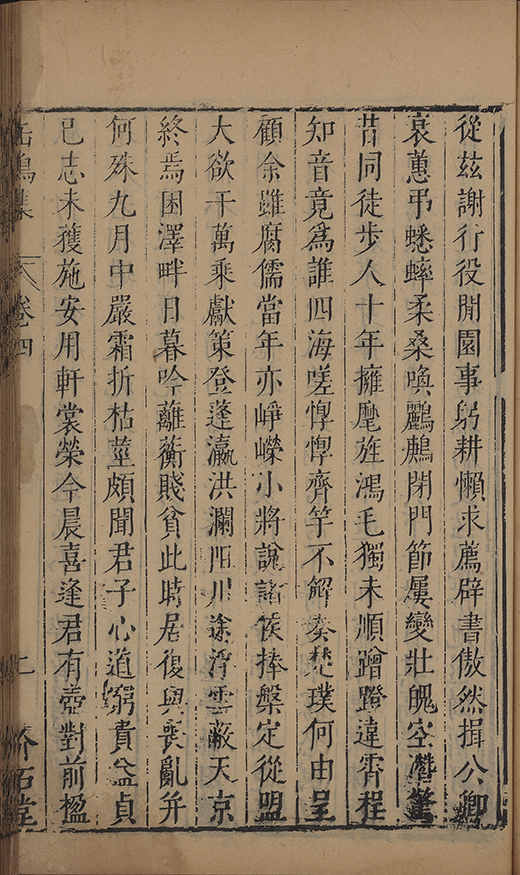 從茲謝行役閒園事躬耕懶求薦辟書傲然揖公卿
哀蕙弔蟋蟀柔桑喚鸝鶊閉門節屢變壯魄空潛驚
昔同徒步人十年擁麾旌鴻毛獨未順蹭蹬違霄程
知音竟為誰四海嗟惸惸齊竽不解奏楚璞何由呈
顧余雖腐儒當年亦崢嶸小將說諸侯捧槃定從盟
大欲干萬乘獻策登蓬瀛洪瀾阻川途浮雲蔽天京
終焉困澤畔日暮吟蘺蘅賤貧此時居復與喪亂并
何殊九月中嚴霜折枯莖頗聞君子心道窮貴益貞
已志未獲施安用軒裳榮今晨喜逢君有壺對前楹
缶鳴集 卷四 二